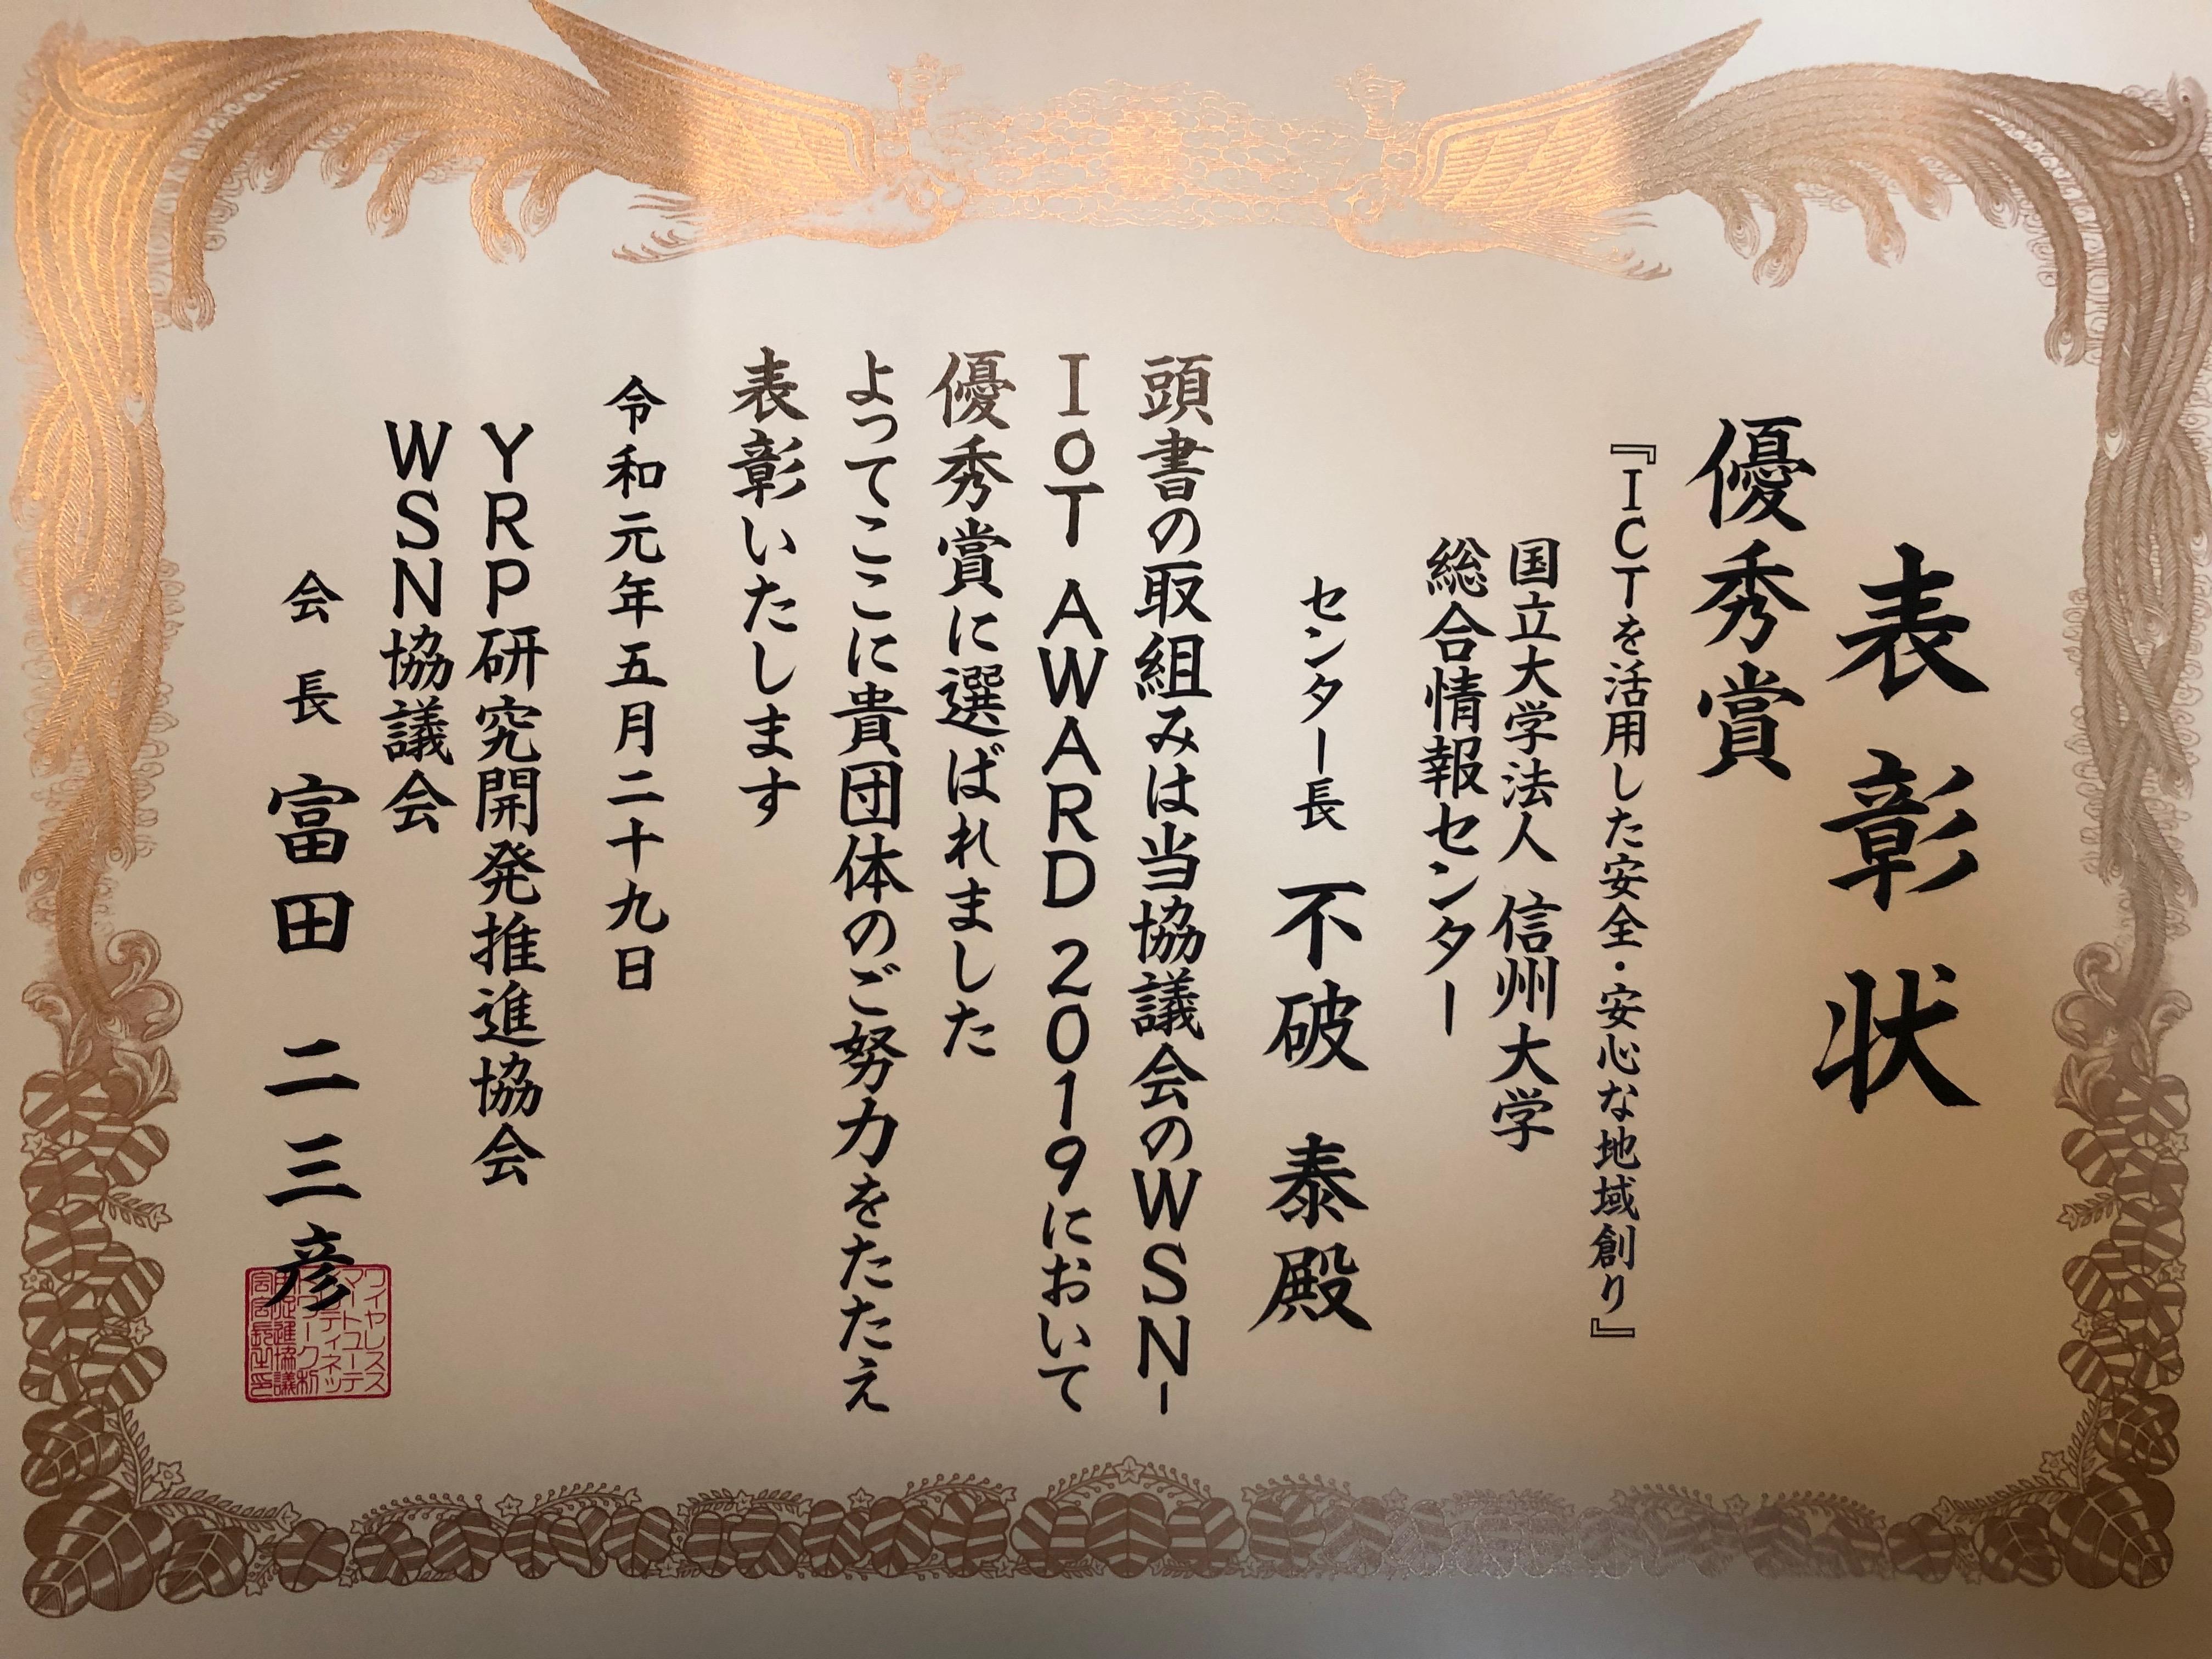 表彰状
優秀賞
『ICTを活用した安全・安心な地域創り』
国立大学法人 信州大学
総合情報センター
センター長 不破 泰 殿
頭書の取組みは当協議会のWSN-
IoT AWARD 2019において
優秀賞に選ばれました
よってここに貴団体のご努力をたたえ
表彰いたします
令和元年五月二十九日
YRP研究開発推進協会
WSN協議会
会長 富田 二三彦